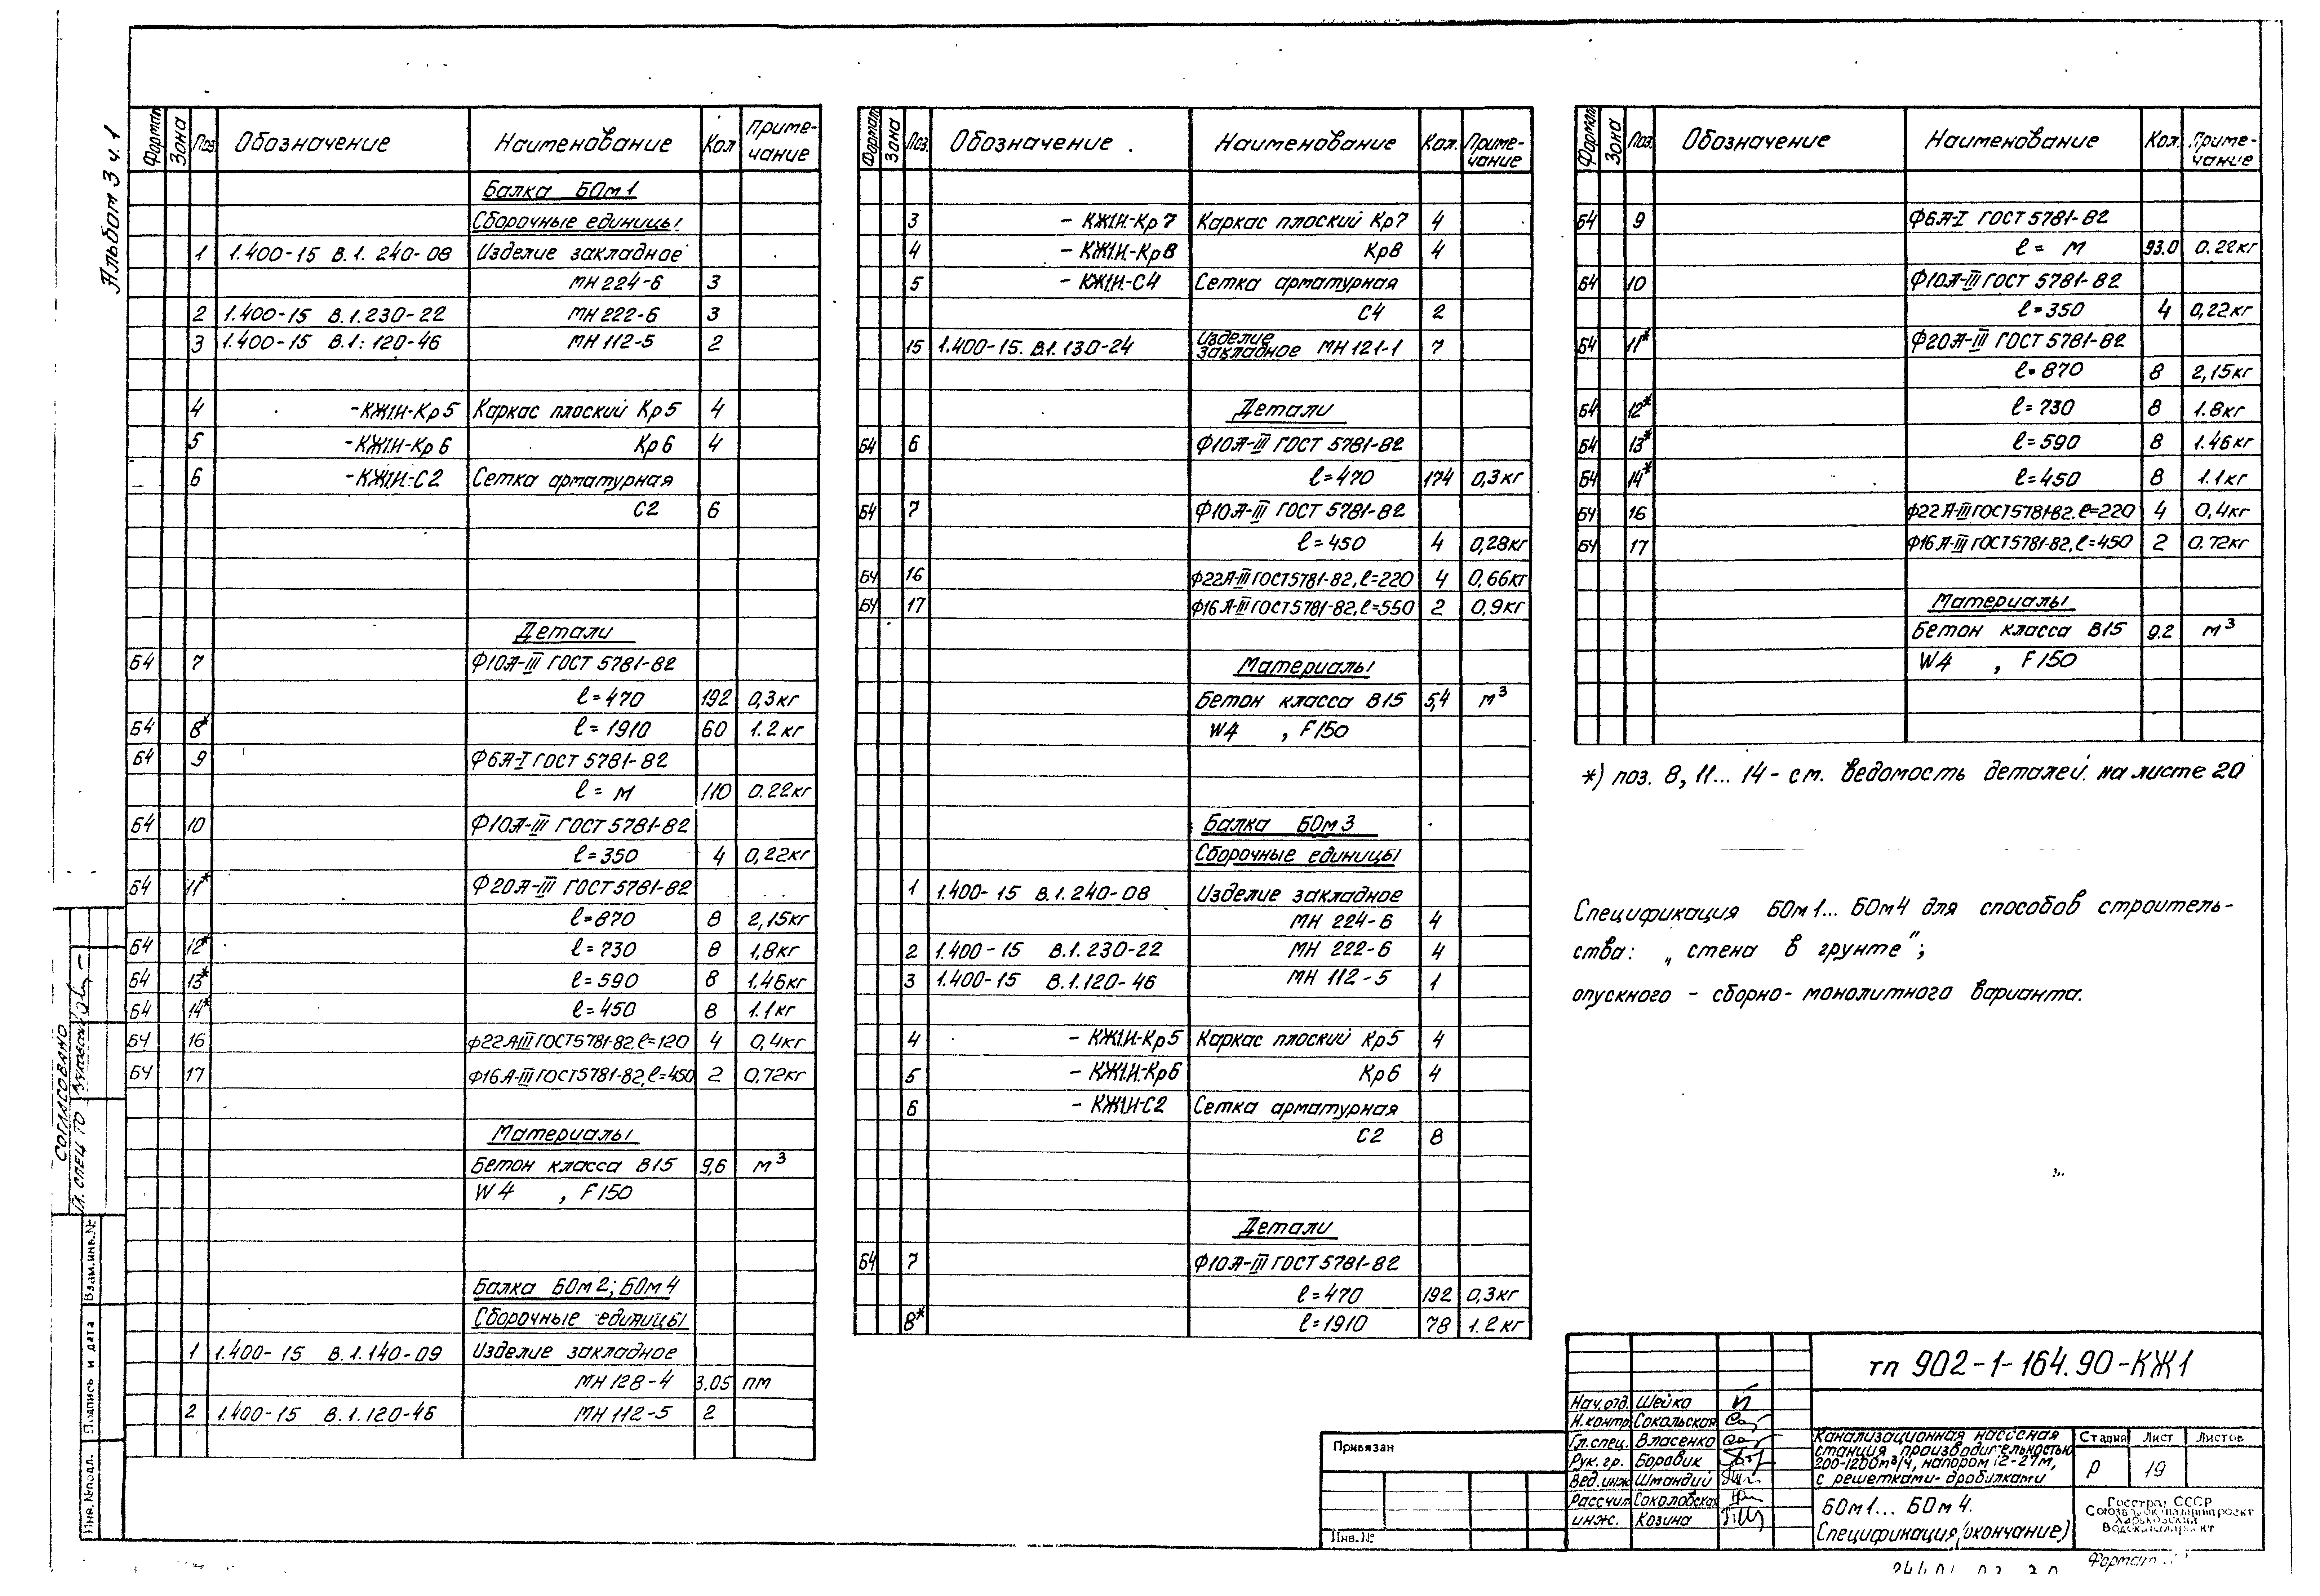 Альбом 3 ч. 1
Формат Зона Поз. Обозначение Наименование Кол Приме-чание
Балка БОм1
Сборочные единицы
1 1.400-15 В.1. 240-08 Изделие закладное
МН 224-6 3
2 1.400-15 В.1.230-22 МН 222-6 3
3 1.400-15 В.1: 120-46 МН 112-5 2
4 -КЖ1И-Кр5 Каркас плоский Кр5 4
5 -КЖ1И-Кр6 Кр6 4
6 -КЖ1И-С2 Сетка арматурная
С2 6
Детали
Б4 7 Ф10А-III ГОСТ 5781-82
ℓ=470 192 0,3кг
Б4 8* ℓ=1910 60 1.2кг
Б4 9 Ф6А-I ГОСТ 5781-82
ℓ= м 110 0.22кг
Б4 10 Ф10А-III ГОСТ 5781-82
ℓ=350 4 0,22кг
Б4 11* Ф20А-III ГОСТ 5781-82
ℓ=870 8 2,15кг
Б4 12* ℓ=730 8 1,8кг
Б4 13* ℓ=590 8 1.46кг
Б4 14* ℓ=450 8 1.1кг
Б4 16 Ф22А-III ГОСТ 5781-82. ℓ=120 4 0,4кг
Б4 17 Ф16А-III ГОСТ 5781-82, ℓ=450 2 0,72кг
Материалы
Бетон класса В15 9,6 м³
W4 , F150
Балка БОм2; БОм4
Сборочные единицы
1 1.400-15 В.1.140-09 Изделие закладное
МН 128-4 3.05 пм
2 1.400-15 В.1.120-46 МН 112-5 2
Формат Зона Поз. Обозначение . Наименование Кол. Приме-чание
3 - КЖ1И-Кр7 Каркас плоский Кр7 4
4 - КЖ1И-Кр8 Кр8 4
5 - КЖ1И-С4 Сетка арматурная
С4 2
15 1.400-15. В.1. 130-24 Изделие закладное МН 121-1 7
Детали
Б4 6 Ф10А-III ГОСТ 5781-82
ℓ=470 174 0,3кг
Б4 7 Ф10А-III ГОСТ 5781-82
ℓ=450 4 0,28кг
Б4 16 Ф22А-III ГОСТ 5781-82, ℓ=220 4 0,66кг
Б4 17 Ф16А-III ГОСТ 5781-82, ℓ=550 2 0,9кг
Материалы
Бетон класса В15 5,4 м³
W4 , F150
Балка БОм3
Сборочные единицы
1 1.400-15 В.1.240-08 Изделие закладное
МН 224-6 4
2 1.400-15 В.1.230-22 МН 222-6 4
3 1.400-15 В.1.120-46 МН 112-5 1
4 - КЖ1И-Кр5 Каркас плоский Кр5 4
5 - КЖ1И-Кр6 Кр6 4
6 - КЖ1И-С2 Сетка арматурная
С2 8
Детали
Б4 7 Ф10А-III ГОСТ 5781-82
ℓ=470 192 0,3кг
8* ℓ=1910 78 1.2кг
Формат Зона Поз. Обозначение Наименование Кол. Приме-чание
Б4 9 Ф6А-I ГОСТ 5781-82
ℓ= м 93.0 0.22кг
Б4 10 Ф10А-III ГОСТ 5781-82
ℓ=350 4 0,22кг
Б4 11* Ф20А-III ГОСТ 5781-82
ℓ=870 8 2,15кг
Б4 12* ℓ=730 8 1.8кг
Б4 13* ℓ=590 8 1.46кг
Б4 14* ℓ=450 8 1.1кг
Б4 16 Ф22А-III ГОСТ 5781-82. ℓ=220 4 0,4кг
Б4 17 Ф16А-III ГОСТ 5781-82, ℓ=450 2 0.72кг
Материалы
Бетон класса В15 9.2 м³
W4 , F150
*) поз. 8, 11... 14 - см. ведомость деталей. на листе 20
Спецификация БОм1... БОм4 для способов строитель-
ства: „ стена в грунте";
опускного - сборно-монолитного варианта.
СОГЛАСОВАНО
Гл. СПЕЦ ТО
Взам.инв.№
Подпись и дата
Инв.№подл.
Привязан
Инв.№
тп 902-1-164.90-КЖ1
Нач.отд. Шейко
Н.контр. Сокольская
Гл.спец. Власенко
Рук. гр. Боровик
Вед.инж Штандий
Рассчит Соколовская
инж. Козина
Канализационная насосная
станция производительностью
200-1200м³/ч, напором 12-27м,
с решетками-дробилками
Стадия Лист Листов
Р 19
БОм1... БОм4.
Спецификация (окончание)
Госстрой СССР
Союзводоканалпроект
Харьковский
Водоканалпроект
Формат